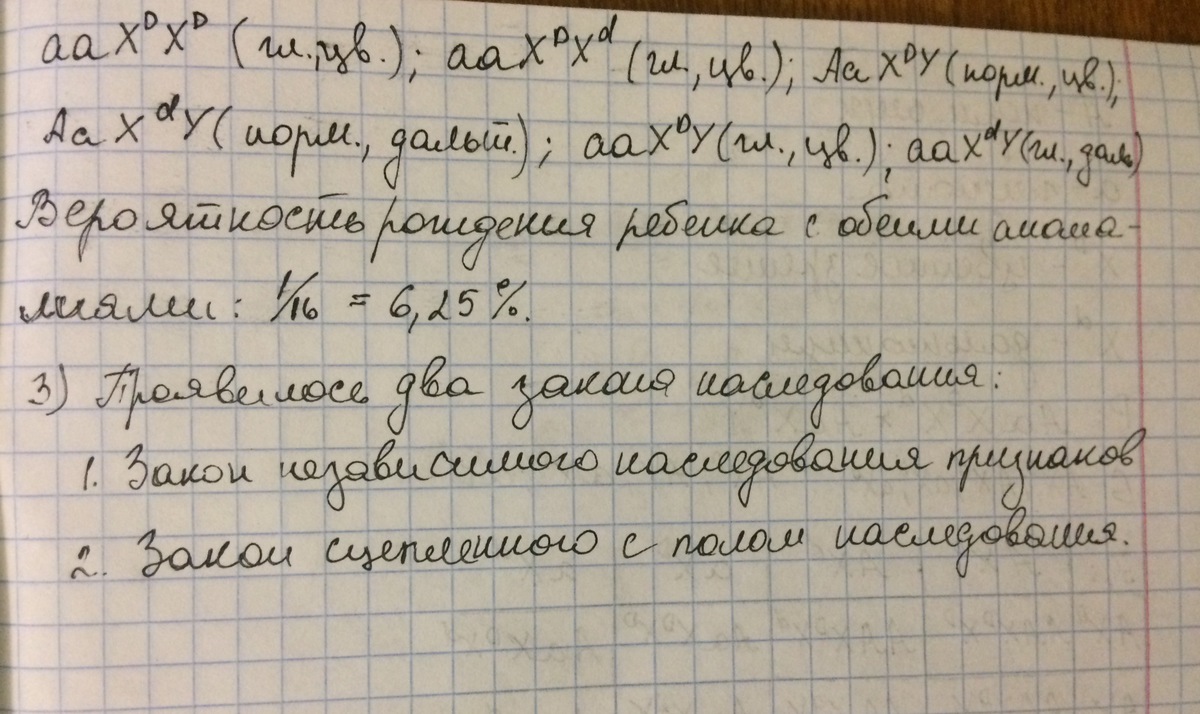 aaXᴰXᴰ (гл., цв.); aaXᴰXᵈ (гл, цв.); AaXᴰY (норм., цв.);
AaXᵈY (норм., дальт.); aaXᴰY (гл., цв.); aaXᵈY (гл., даль)
Вероятность рождения ребенка с обеими анома-
лиями: 1/16 = 6,25%.
3) Проявилось два закона наследования:
1. Закон независимого наследования признаков
2. Закон сцепленного с полом наследования.